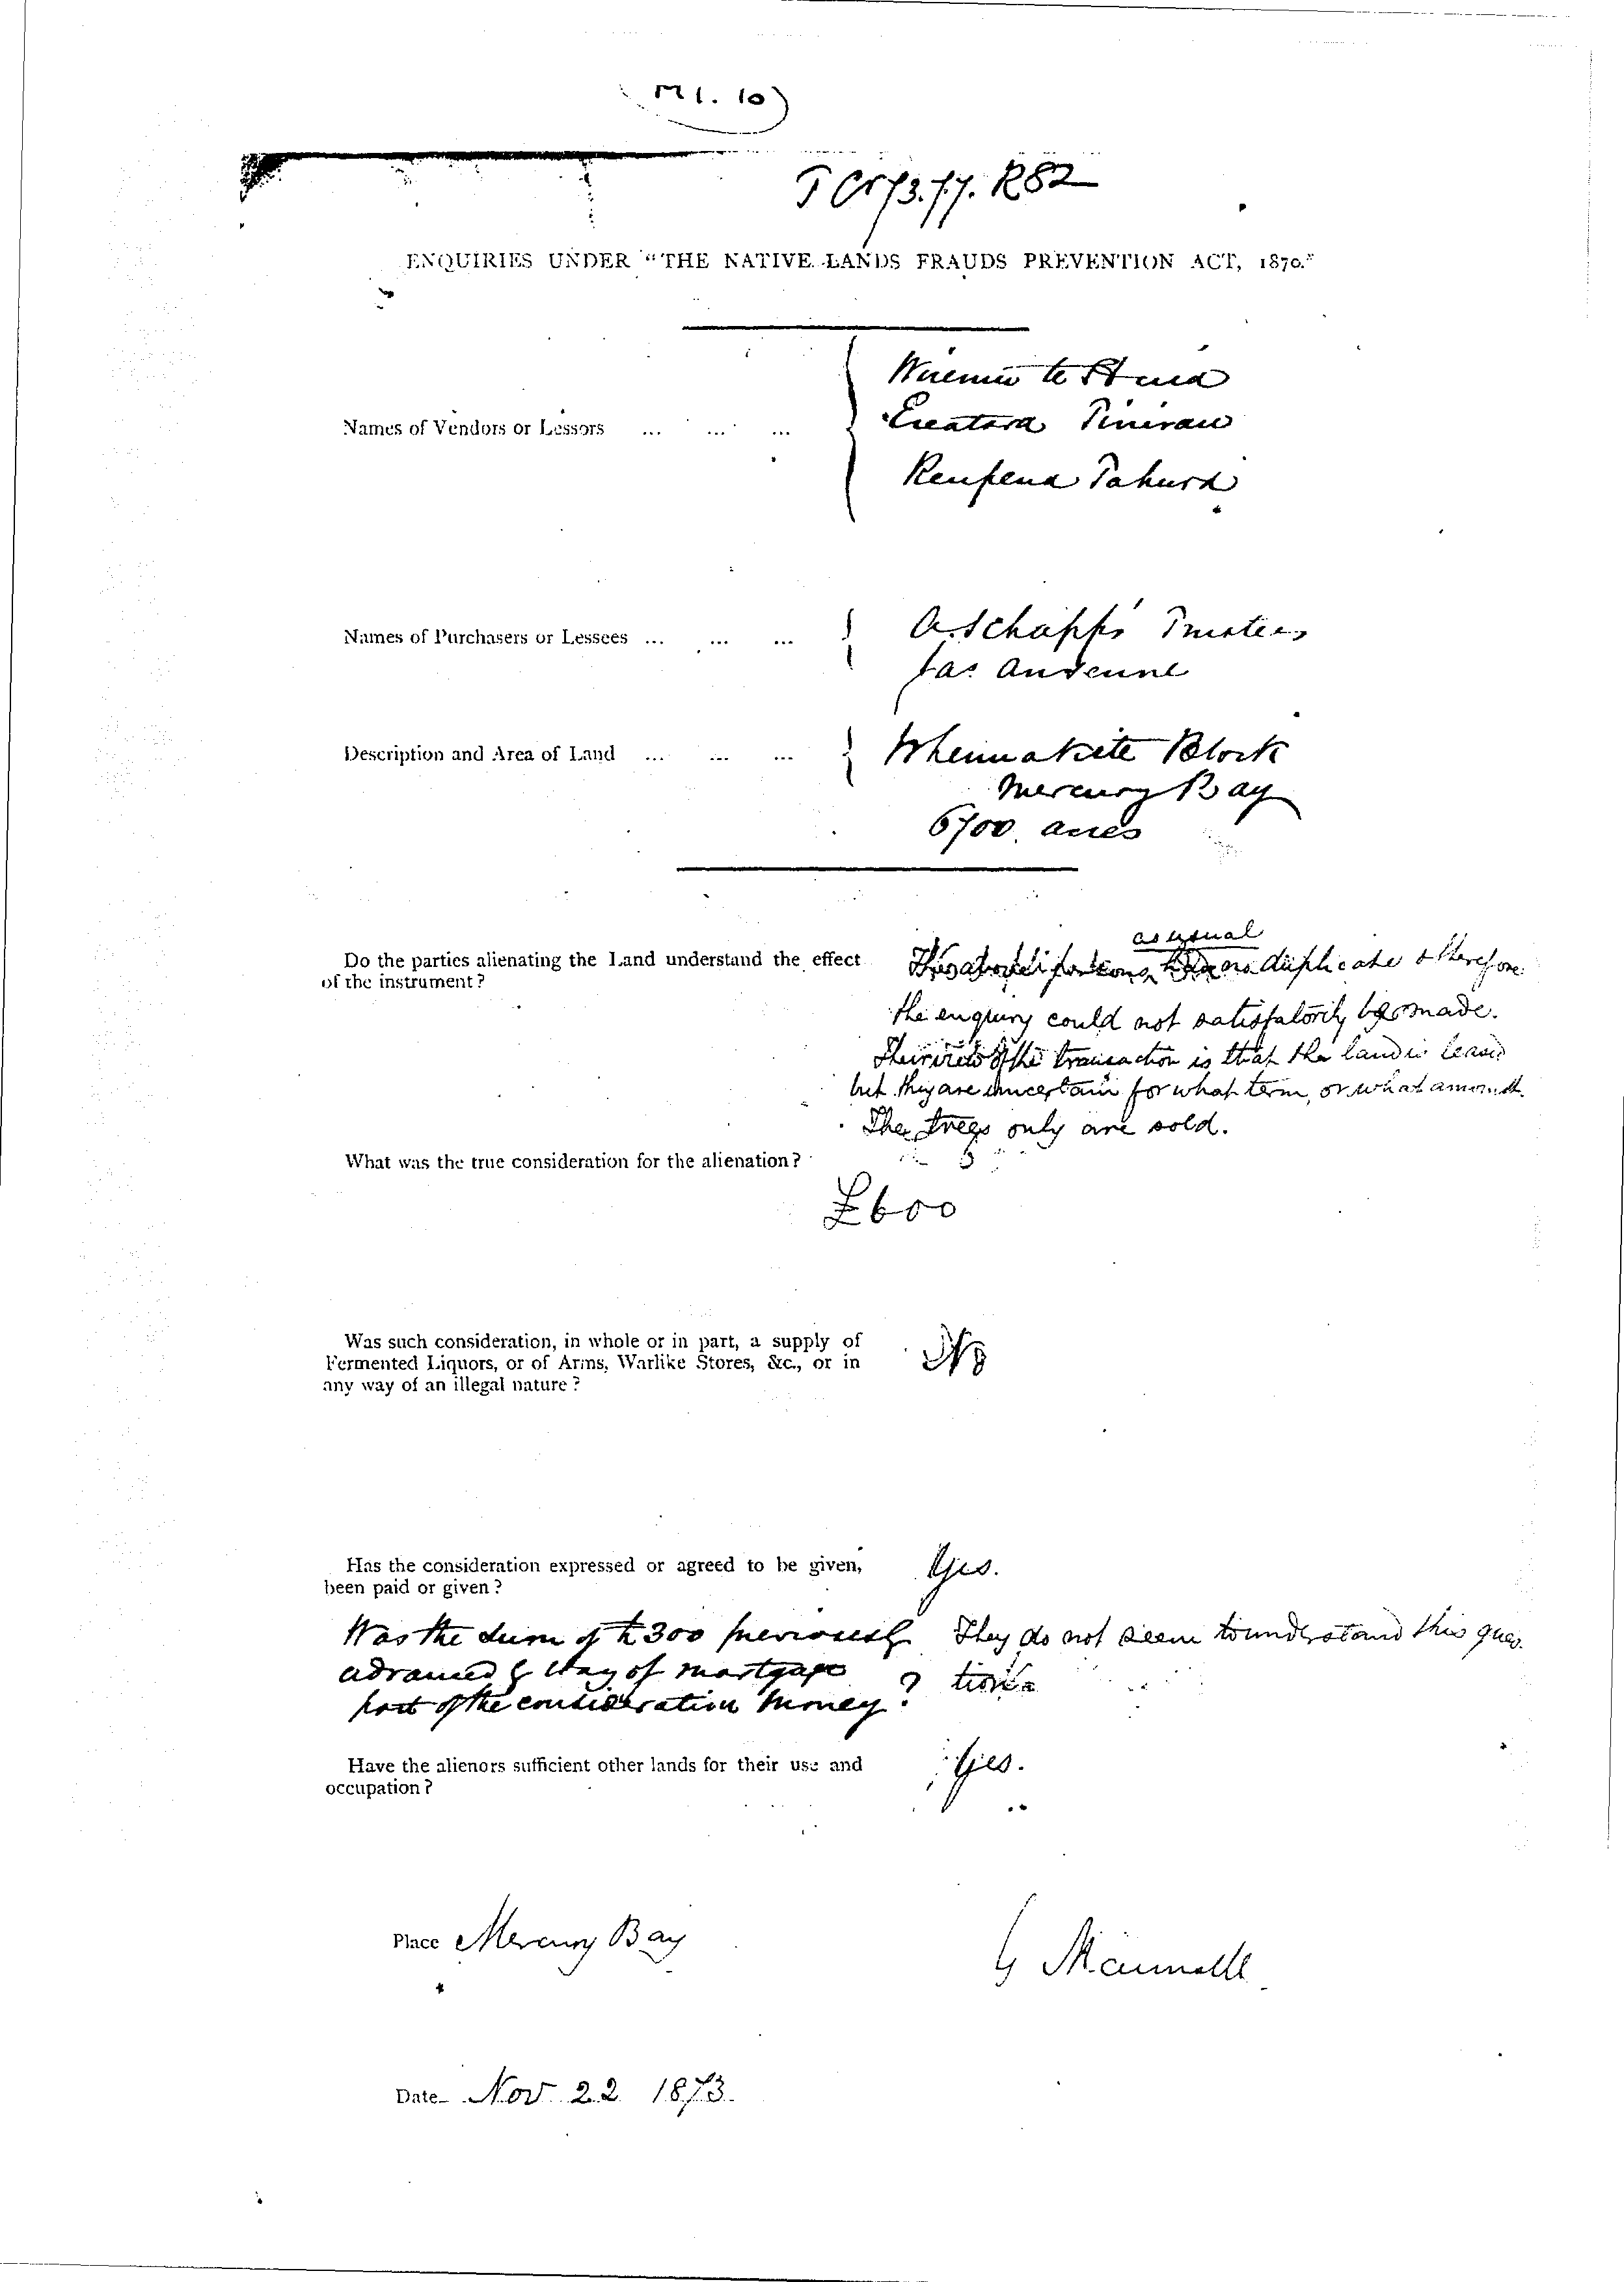 M 1. 10
T Cr 73.17. R82
ENQUIRIES UNDER "THE NATIVE LANDS FRAUDS PREVENTION ACT, 1870."
Names of Vendors or Lessors ... ... ...
Wiremu te
Pinerau
Reupena Tahura
Names of Purchasers or Lessees ... ... ...
Trustees
Jas
Description and Area of Land ... ... ...
Whenuakite Block
Mercury Bay
6700 acres
as usual
Do the parties alienating the Land understand the effect
of the instrument?
duplicate & therefore
the enquiry could not satisfactorily be made.
Their idea of the transaction is that the land is leased
but they are uncertain for what term, or what amount.
The trees only are sold.
What was the true consideration for the alienation?
£600
Was such consideration, in whole or in part, a supply of
Fermented Liquors, or of Arms, Warlike Stores, &c., or in
any way of an illegal nature?
No
Has the consideration expressed or agreed to be given,
been paid or given?
Yes.
Was the sum of £300 previously
advanced by way of mortgage
part of the consideration money?
They do not seem to understand this ques-
tion.
Have the alienors sufficient other lands for their use and
occupation?
Yes.
Place Mercury Bay
Date Nov 22 1873.